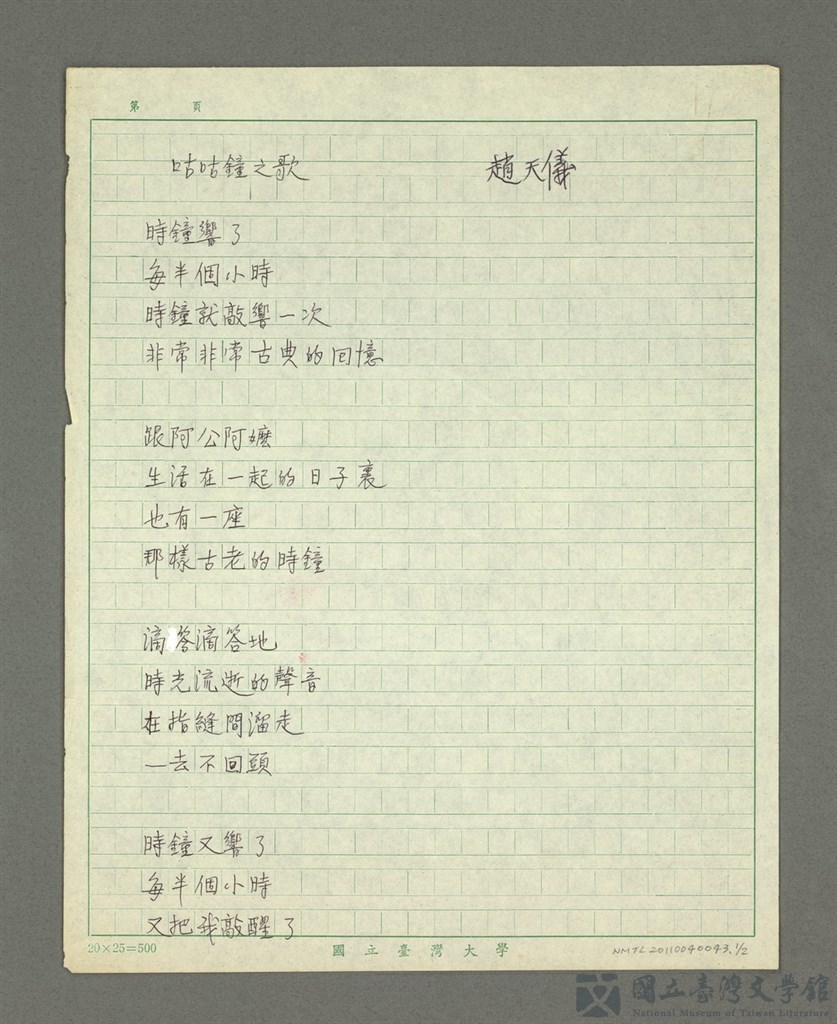 第 頁
咕咕鐘之歌 趙天儀
時鐘響了
每半個小時
時鐘就敲響一次
非常非常古典的回憶
跟阿公阿嬤
生活在一起的日子裏
也有一座
那樣古老的時鐘
滴答滴答地
時光流逝的聲音
在指縫間溜走
一去不回頭
時鐘又響了
每半個小時
又把我敲醒了
20×25=500 國立臺灣大學 NMTL20110040043.1/2
國立臺灣文學館
National Museum of Taiwan Literature